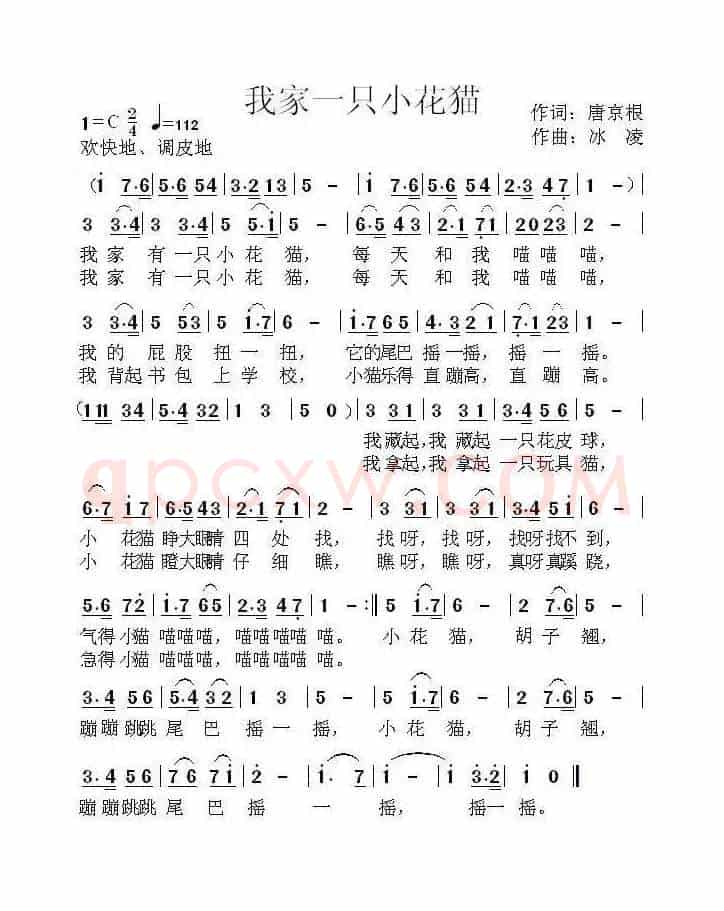 我家一只小花猫
1=C 2/4 ♩=112
作词：唐京根
作曲：冰 凌
欢快地、调皮地
(i 7·6|5·6 54|3·2 13|5 -|i 7·6|5·6 54|2·3 47|1 -)|
3 3·4|3 3·4|5 5·i|5 -|6·5 43|2·1 71|2023|2 -|
我家 有一只小花 猫， 每天 和我 喵喵喵，
我家 有一只小花 猫， 每天 和我 喵喵喵，
3 3·4|5 53|5 i·7|6 -|i·7 65|4·3 21|7·1 23|1 -|
我的 屁股 扭一扭， 它的尾巴 摇一摇，摇一摇。
我背起书包 上学 校， 小猫乐得 直蹦高，直蹦高。
(111 34|5·4 32|1 3|5 0)|3 31|3 31|3·4 55|6 -|
我藏起,我 藏起 一只花皮 球，
我拿起,我 拿起 一只玩具 猫，
6·7 i7|6·5 43|2·1 71|2 -|3 33|5 55|3·4 5i|6 -|
小 花猫 睁大眼睛 四处 找， 找呀,找呀,找呀找不 到，
小 花猫 瞪大眼睛 仔细 瞧， 瞧呀,瞧呀,真呀真蹊 跷，
5·6 72|i·7 65|2·3 47|1 -:‖5 i·7|6 -|2 7·6|5 -|
气得小猫 喵喵喵，喵喵喵喵 喵。 小花 猫， 胡子 翘，
急得小猫 喵喵喵，喵喵喵喵 喵。
3·4 56|5·4 32|1 3|5 -|5 i·7|6 -|2 7·6|5 -|
蹦蹦跳跳 尾巴 摇一 摇， 小花 猫， 胡子 翘，
3·4 56|76 7i|2 -|i· 7|i -|i -|3·2|i 0‖
蹦蹦跳跳 尾巴 摇 一 摇， 摇一 摇。
qpcxw.COM